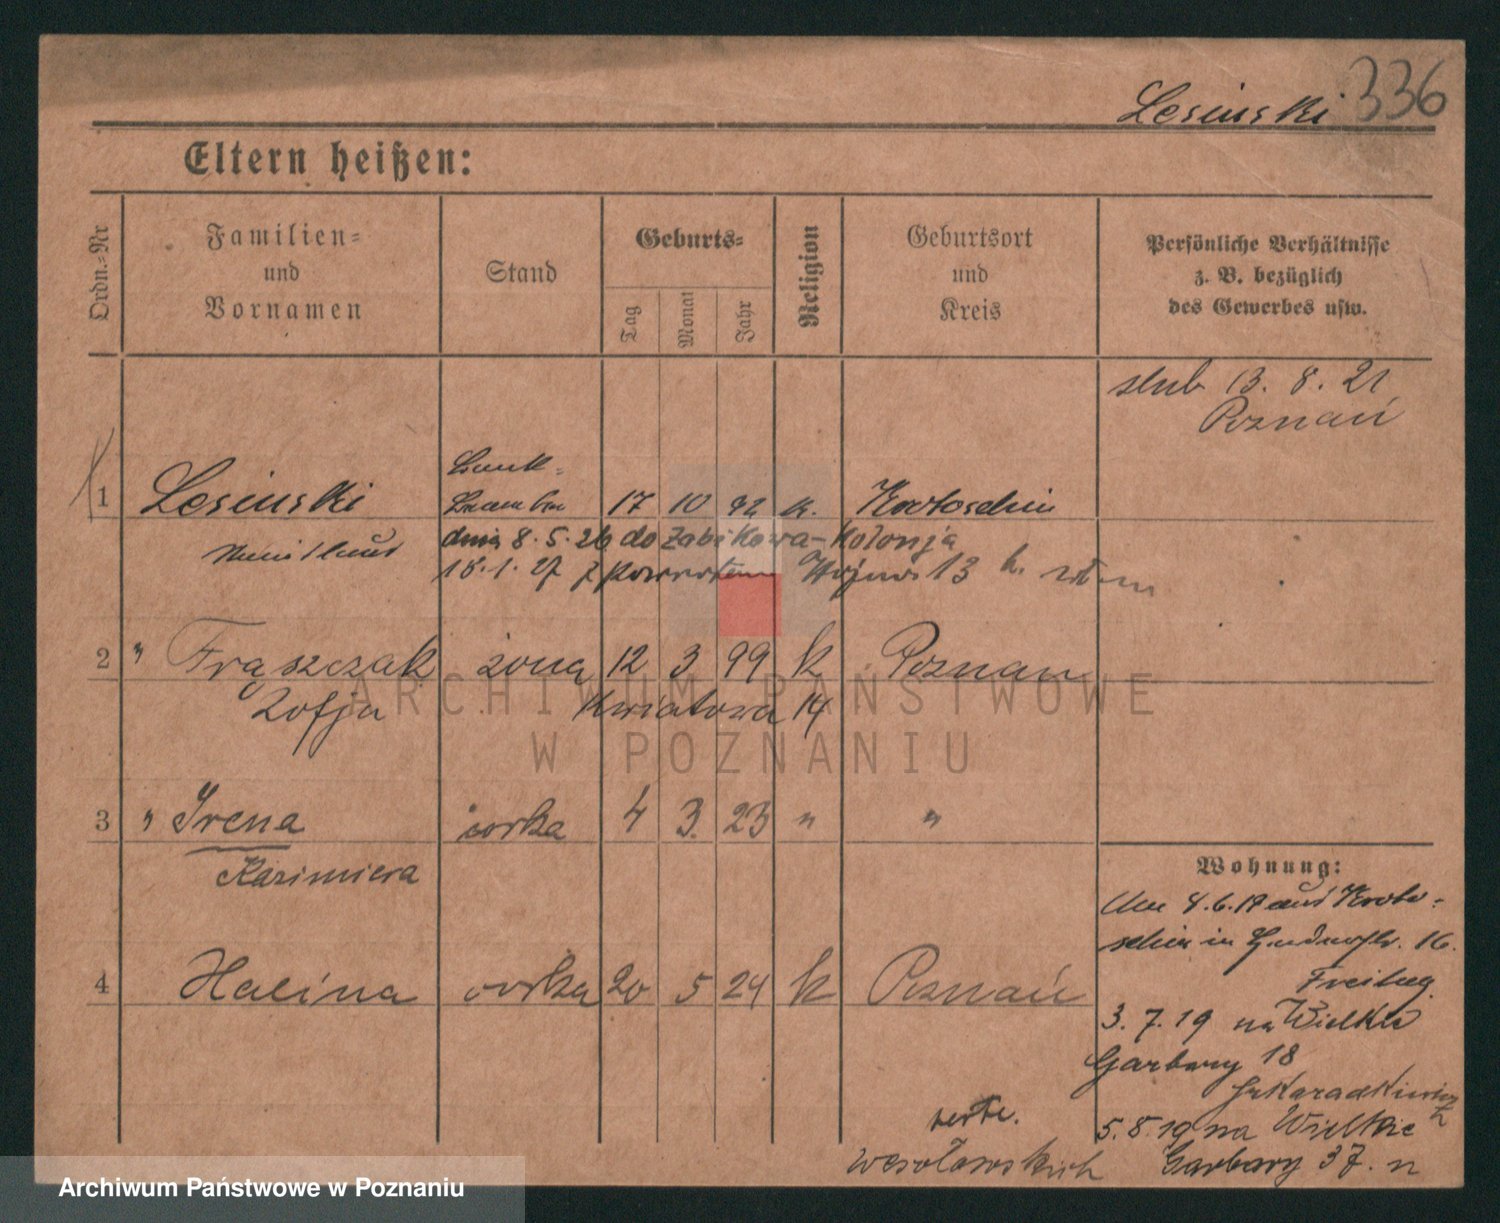 Lesinski 336
Eltern heißen:
Ordn.=Nr
Familien=
und
Vornamen
Stand
Geburts=
Tag
Monat
Jahr
Religion
Geburtsort
und
Kreis
Persönliche Verhältnisse
z. B. bezüglich
des Gewerbes usw.
slub 13. 8. 21
Poznań
Bank=
1 Lesinski Beamter 17 10 92 k. Krotoschin
dnia 8.5.26 do Zabikowa-Kolonja
18.1.27 z powrotem 13
2 " Frąszczak żona 12 3 99 k Poznan
Zofja Kwiatowa 14
ARCHIWUM PAŃSTWOWE
W POZNANIU
3 " Irena corka 4 3. 23 " "
Kazimiera
Wohnung:
4.6.19 aus Kroto=
schin in 16.
4 Halina corka 20 5 24 k Poznań
Freitag
3.7.19 na Wielkie
Garbary 18
5.8.19 na Wielkie
Garbary 37.
Archiwum Państwowe w Poznaniu